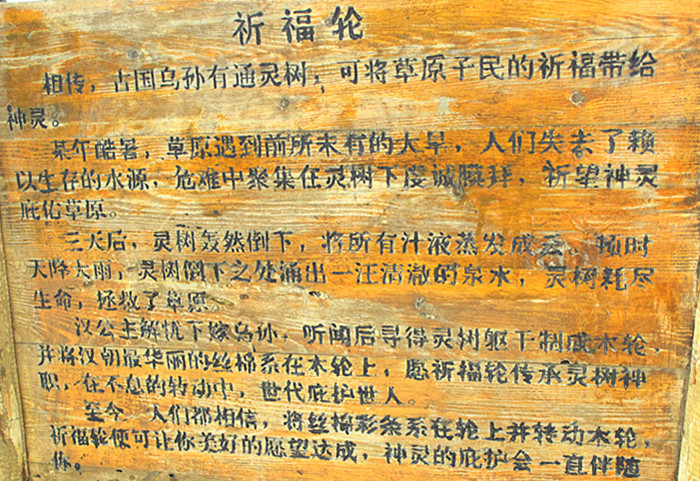 祈福轮
相传，古国乌孙有通灵树，可将草原子民的祈福带给
神灵。
某年酷暑，草原遇到前所未有的大旱，人们失去了赖
以生存的水源，危难中聚集在灵树下虔诚膜拜，祈望神灵
庇佑草原。
三天后，灵树轰然倒下，将所有汁液蒸发成云，顿时
天降大雨，灵树倒下之处涌出一汪清澈的泉水，灵树耗尽
生命，拯救了草原。
汉公主解忧下嫁乌孙，听闻后寻得灵树躯干制成木轮，
并将汉朝最华丽的丝棉系在木轮上，愿祈福轮传承灵树神
职，在不息的转动中，世代庇护世人。
至今，人们都相信，将丝棉彩条系在轮上并转动木轮，
祈福轮便可让你美好的愿望达成，神灵的庇护会一直伴随
你。